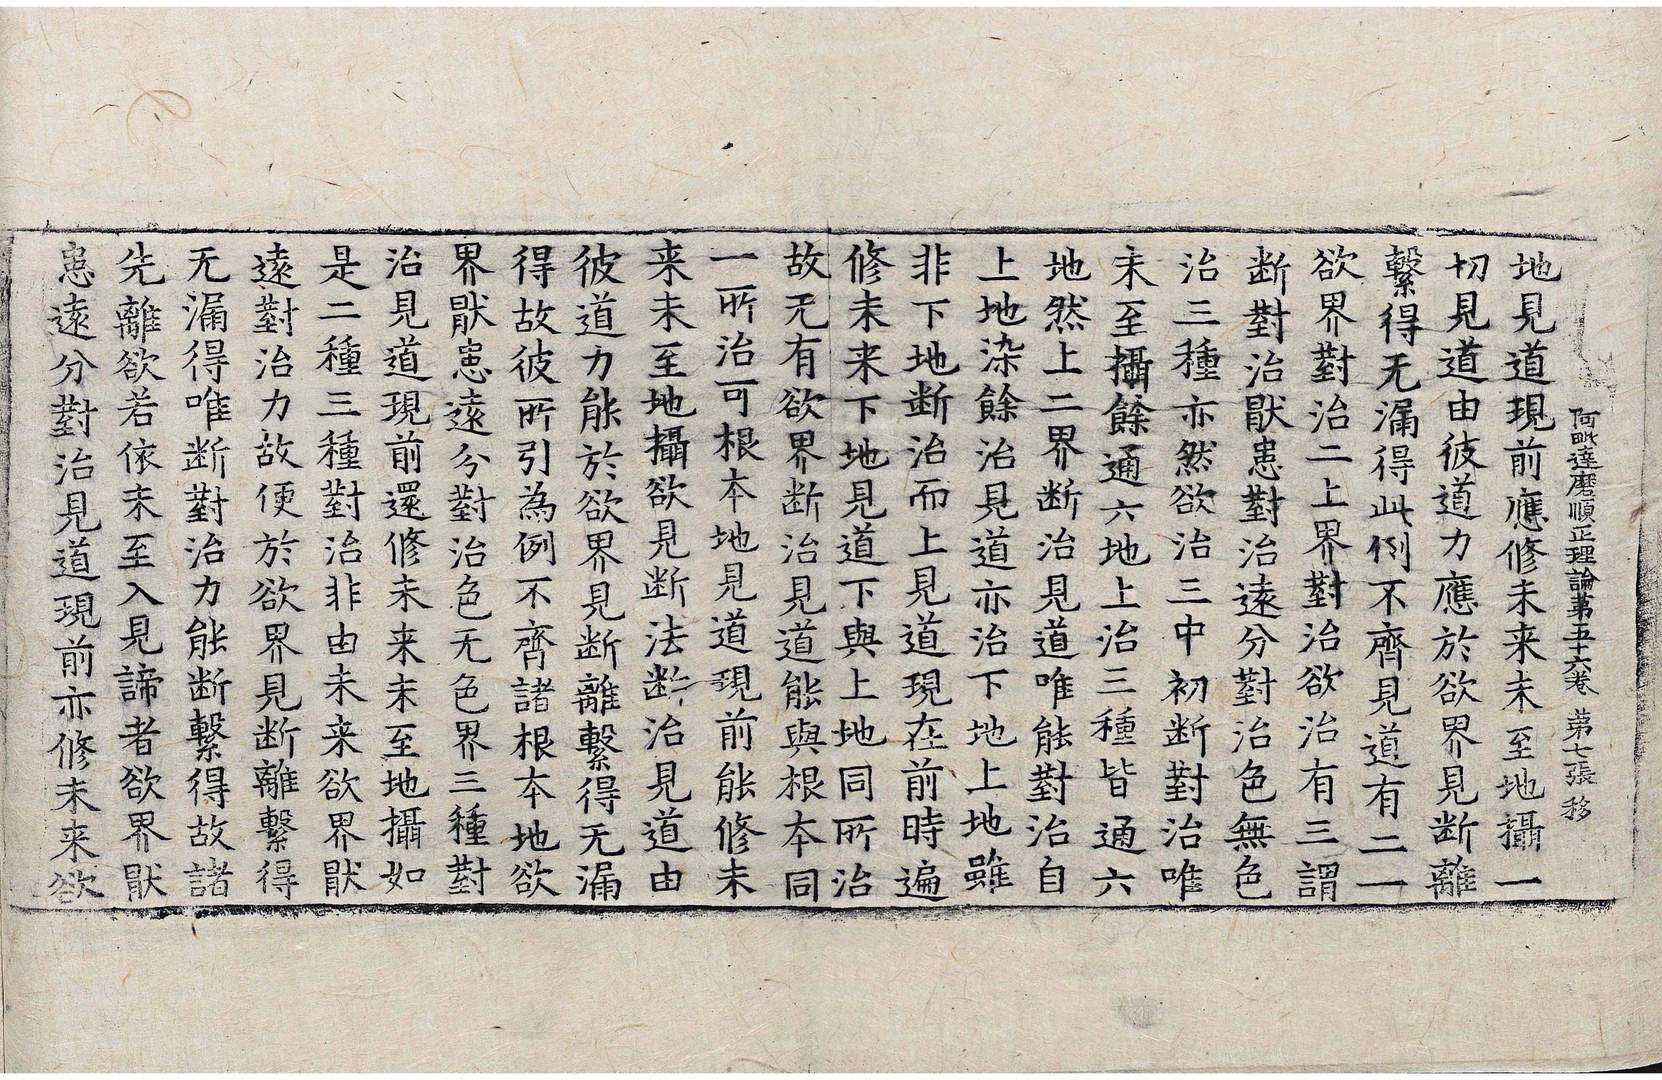 阿毗達磨順正理論第五十六卷 第七張 移
地見道現前應修未来未至地攝一
切見道由彼道力應於欲界見断離
繫得无漏得此例不齊見道有二一
欲界對治二上界對治欲治有三謂
断對治猒患對治遠分對治色無色
治三種亦然欲治三中初断對治唯
未至攝餘通六地上治三種皆通六
地然上二界断治見道唯能對治自
上地染餘治見道亦治下地上地雖
非下地断治而上見道現在前時遍
修未来下地見道下與上地同所治
故无有欲界断治見道能與根本同
一所治可根本地見道現前能修未
来未至地攝欲見断法断治見道由
彼道力能於欲界見断離繫得无漏
得故彼所引為例不齊諸根本地欲
界猒患遠分對治色无色界三種對
治見道現前還修未来未至地攝如
是二種三種對治非由未来欲界猒
遠對治力故便於欲界見断離繫得
无漏得唯断對治力能断繫得故諸
先離欲若依未至入見諦者欲界猒
患遠分對治見道現前亦修未来欲